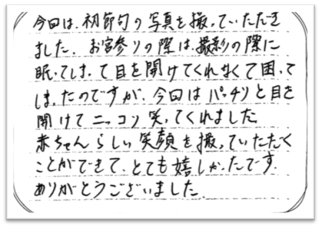 今回は、初節句の写真を撮っていただき
ました。お宮参りの際は、撮影の際に
眠ってしまって目を開けてくれなくて困って
しまったのですが、今回はパッチリと目を
開けてニッコリ笑ってくれました
赤ちゃんらしい笑顔を撮っていただく
ことができて、とても嬉しかったです
ありがとうございました